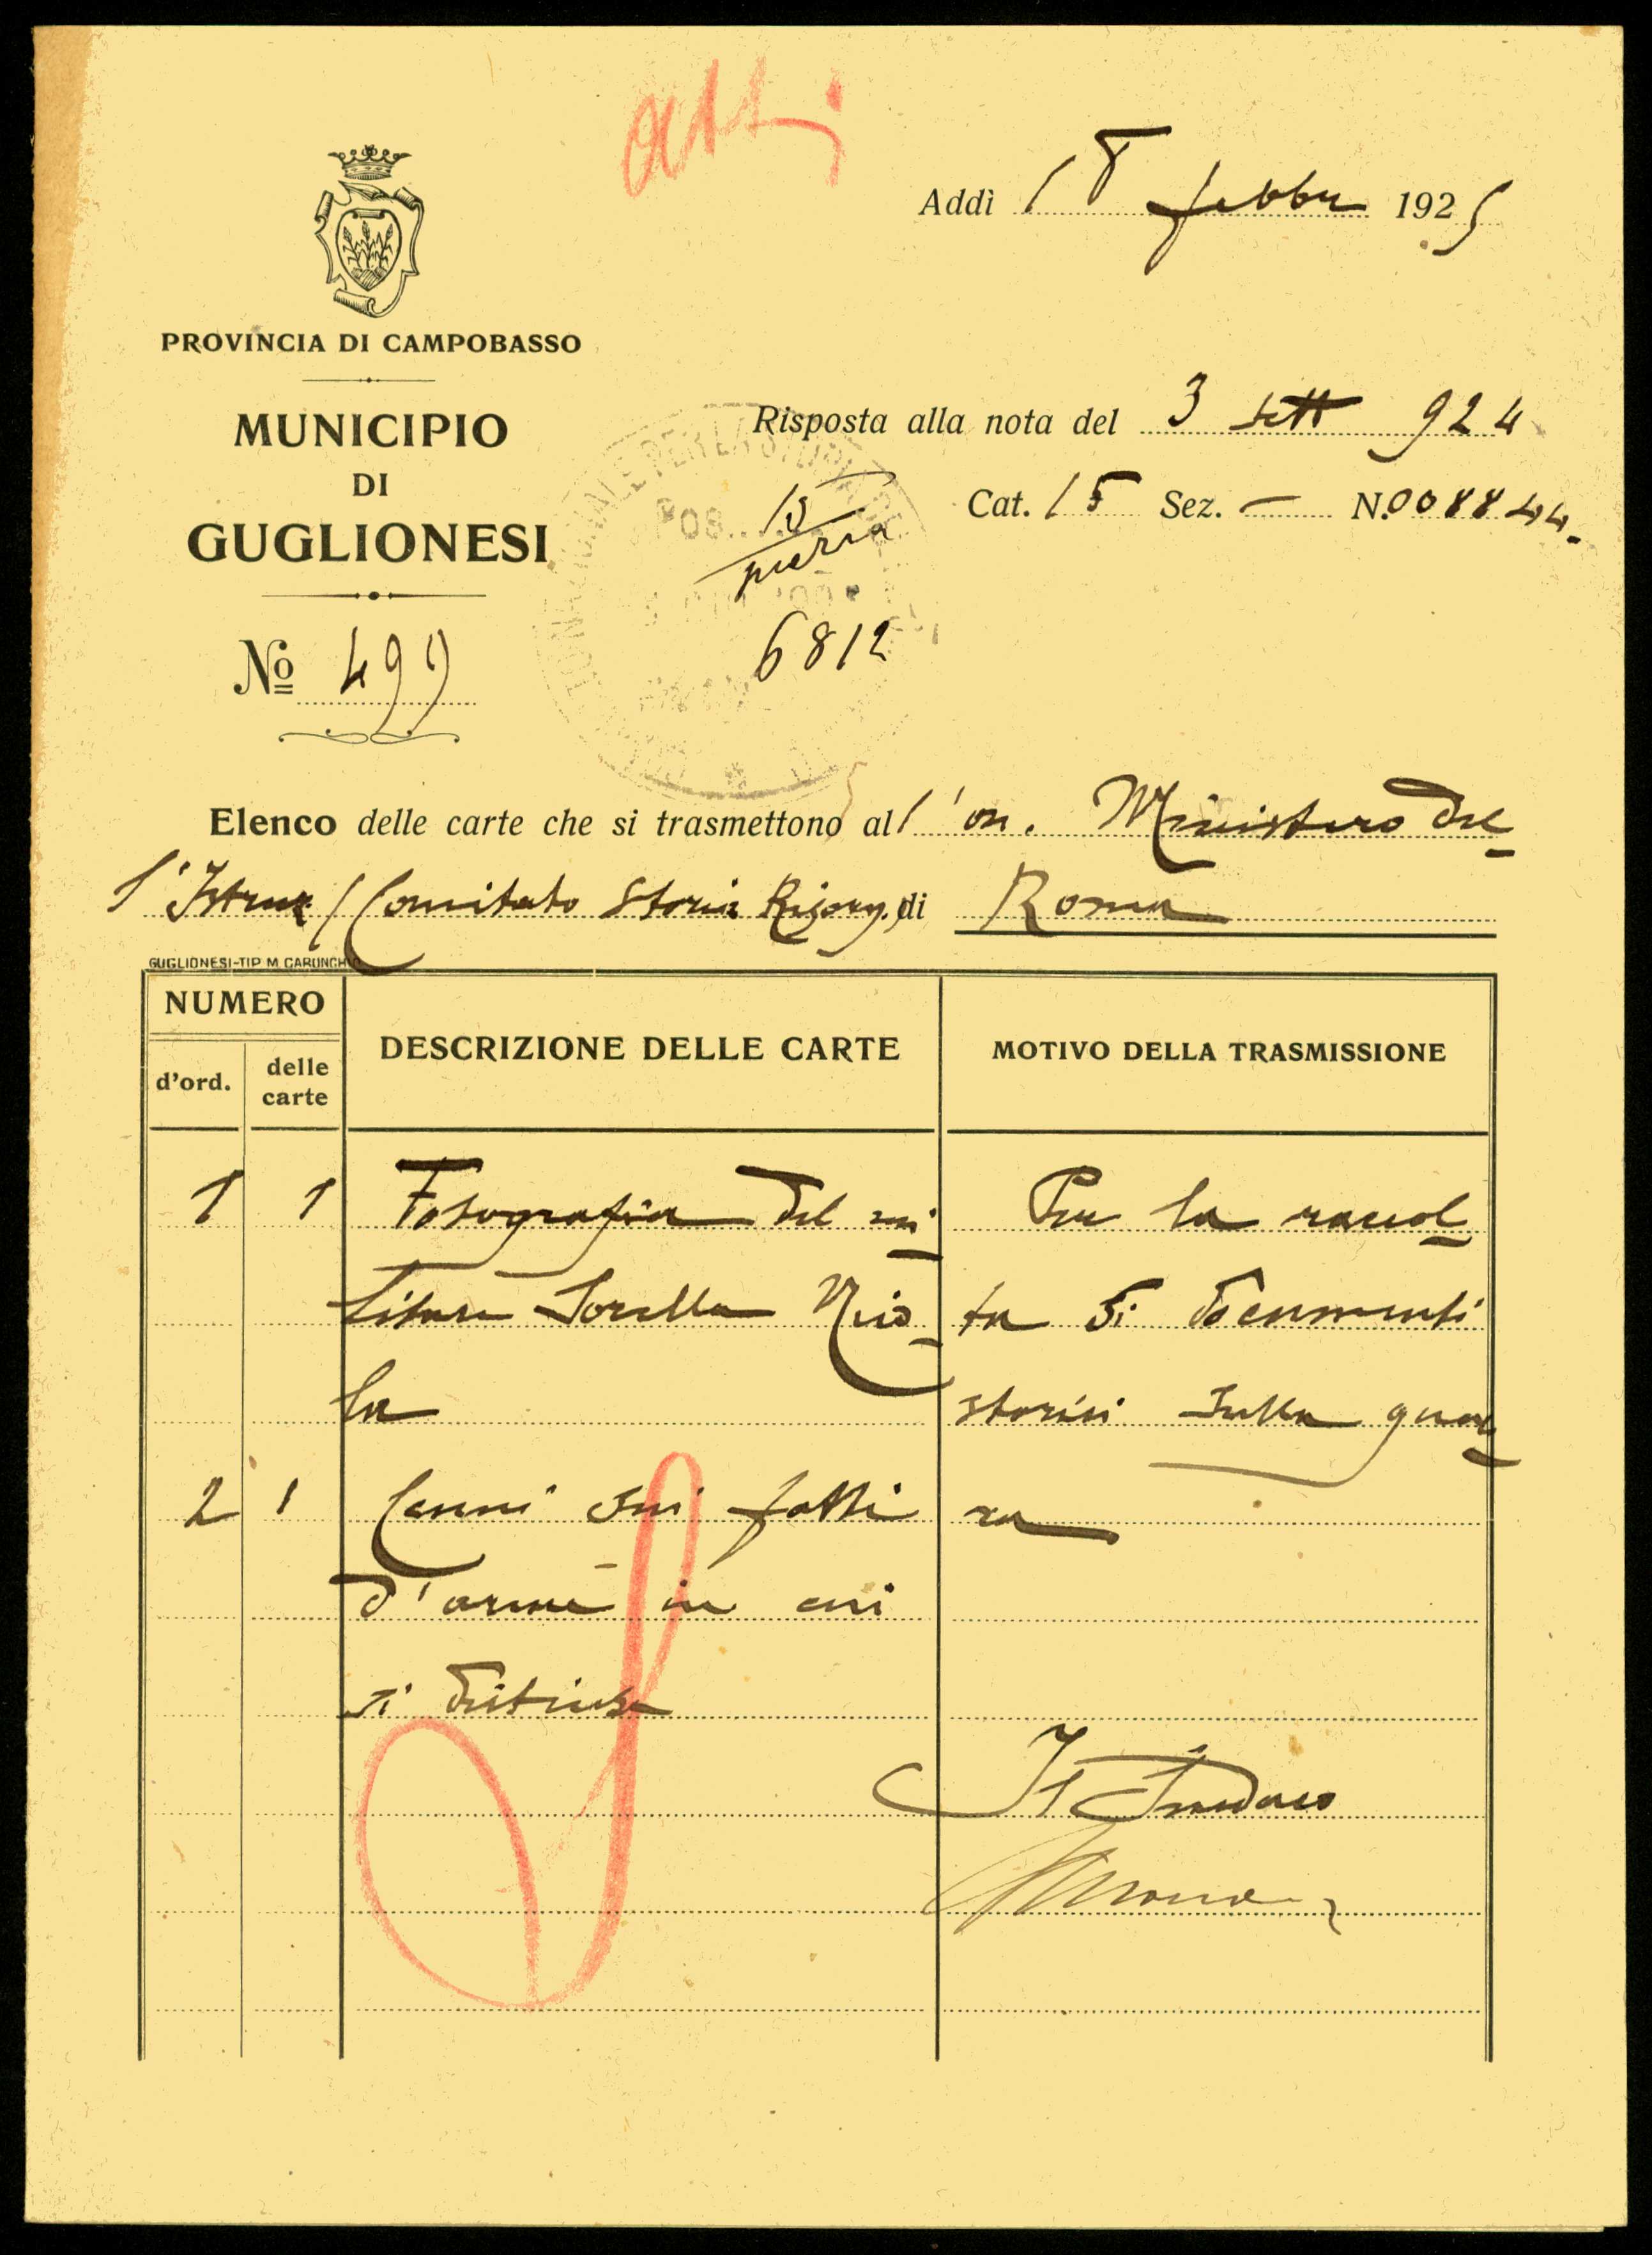 atti
Addì 18 febbr 1925
PROVINCIA DI CAMPOBASSO
MUNICIPIO
DI
GUGLIONESI
Nº 499
Risposta alla nota del 3 sett 924
Cat. 15 Sez. — N. 008844.
15
6812
Elenco delle carte che si trasmettono all'on. Ministero del
l'Istruz (Comitato Storia Risorg. di Roma
GUGLIONESI-TIP M CARUNCHIO
NUMERO
d'ord.
delle carte
DESCRIZIONE DELLE CARTE
MOTIVO DELLA TRASMISSIONE
1 1 Fotografia del mi
litare Sorella Nico
la
2 1 Cenni sui fatti
d'arme in cui
si distinse
Per la raccol
ta di documenti
storici sulla guer
ra
Il Sindaco